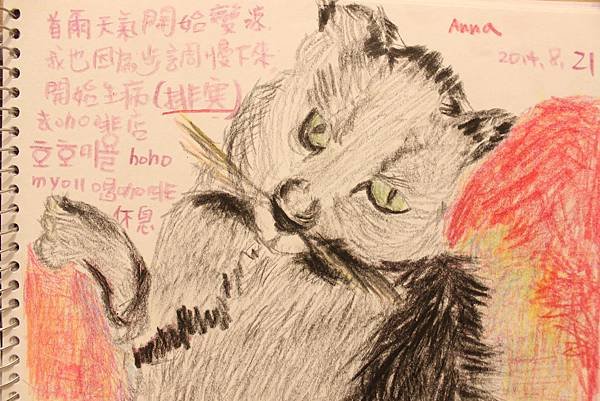 首爾天氣開始變涼
我也因為步調慢下來
開始生病(排寒)
去hoho咖啡店
호호 hoho
myoll喝咖啡
休息
Anna
2014.8.21